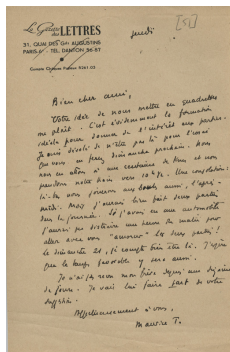 Le Génie des LETTRES
31, QUAI DES Gds AUGUSTINS
PARIS-6e - TEL. DANTON 56-57
Compte Chèques Postaux 9361 03
jeudi
[51]
Bien cher ami,
Votre idée de nous mettre en quadrettes
me plaît. C'est évidemment la formation
idéale pour donner de l'intérêt aux parties.
Je suis désolé de n'être pas là pour l'essai
que vous en ferez dimanche prochain. Nous
en allons à une centaine de kms et nous
prendrons notre train vers 10h. Une consolation:
là-bas nous jouerons aux boules aussi, l'après-
midi. Mais j'aurais bien fait deux parties
dans la journée. Si j'avais eu une automobile
j'aurais pu distraire une heure du matin pour
aller avec vous "amorcer" les deux parties!
le dimanche 21, je compte bien être là. J'espère
que le temps favorable y sera aussi.
Je n'ai pas revu mon frère depuis une dizaine
de jours. Je vais lui faire part de votre
suggestion.
Affectueusement à vous,
Maurice T.